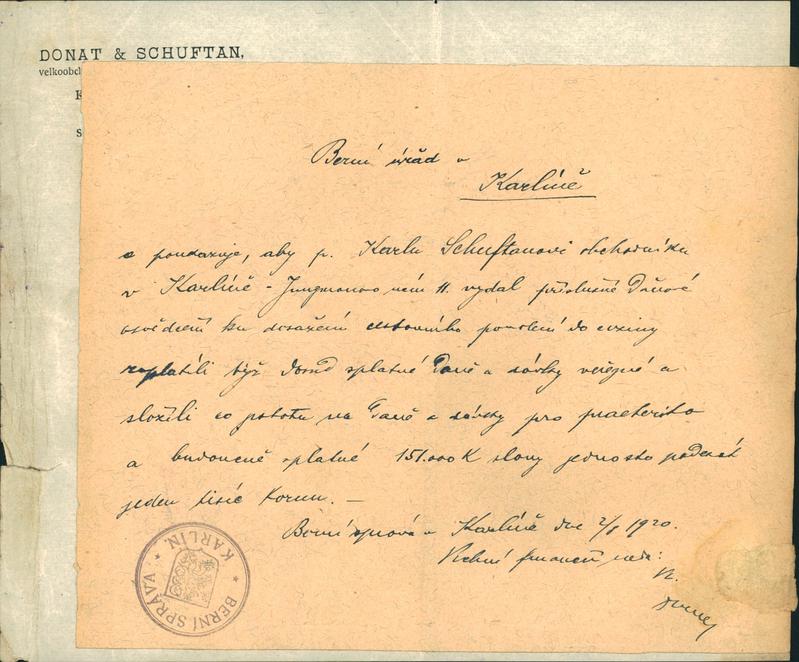 DONAT & SCHUFTAN,
velkoobch
K
S
Berní úřad v
Karlíně
se poukazuje, aby p. Karlu Schuftanovi obchodníku
v Karlíně - Jungmanovo nám 11. vydal příslušné Daňové
osvědčení ku dosažení cestovního povolení do ciziny
zaplatili týž dosud splatné Daně a dávky veřejné a
složili co jistotu na Daně a dávky pro praeterito
a budoucně splatné 151.000 K slovy jednosto padesát
jeden tisíc korun. —
Berní správa v Karlíně dne 2/8 1920.
Vrchní finanční rada:
BERNÍ SPRÁVA
KARLÍN.